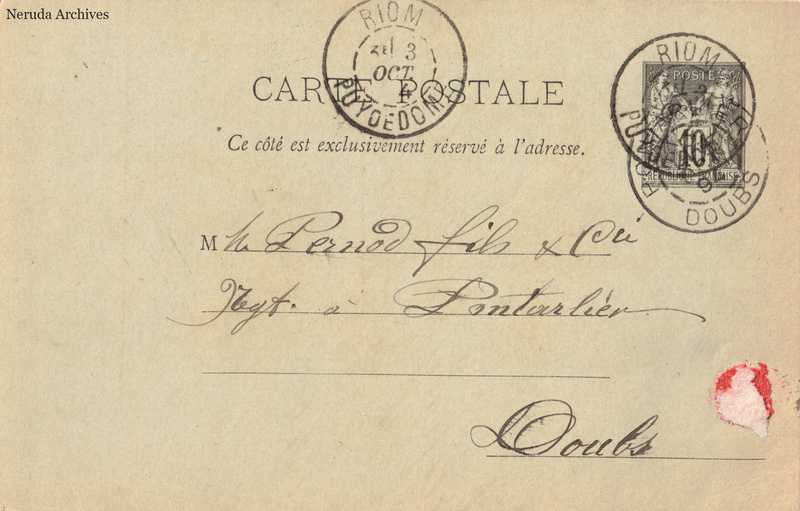 Neruda Archives
RIOM
3
OCT
PUY DE DOME
CARTE POSTALE
Ce côté est exclusivement réservé à l'adresse.
RIOM
POSTE
10
REPUBLIQUE FRANÇAISE
DOUBS
M M. Pernod fils & Cie
Ngt. à Pontarlier
Doubs